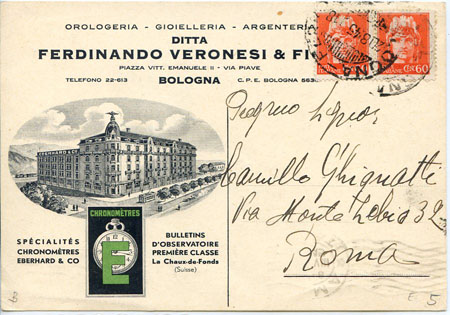 OROLOGERIA - GIOIELLERIA - ARGENTERI
DITTA
FERDINANDO VERONESI & FI
PIAZZA VITT. EMANUELE II - VIA PIAVE
TELEFONO 22-613
BOLOGNA
C.P.E. BOLOGNA
CENT 60
EBERHARD & CO
CHRONOMÈTRES
E
SPÉCIALITÉS
CHRONOMÈTRES
EBERHARD & CO
BULLETINS
D'OBSERVATOIRE
PREMIÈRE CLASSE
La Chaux-de-Fonds
(Suisse)
Camillo Ghignatti
Via Monte Zebio 32
Roma
B
E. 5